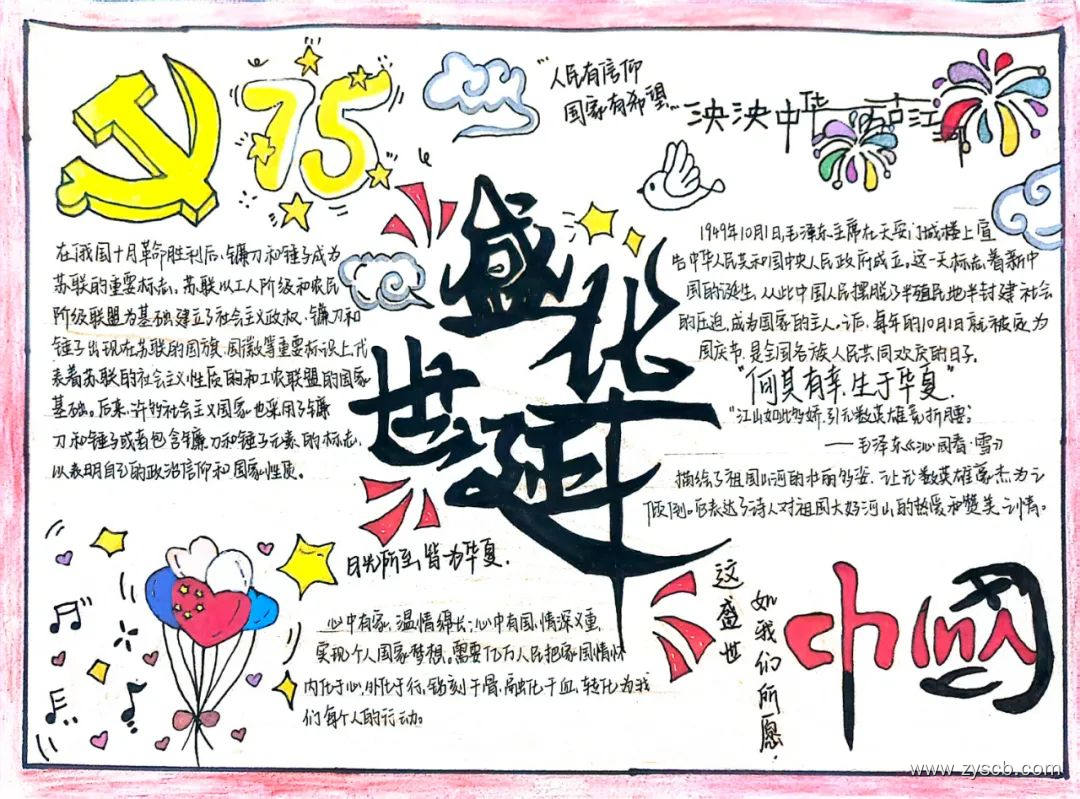 75
“人民有信仰
国家有希望”
泱泱中华
在俄国十月革命胜利后,镰刀和锤子成为
苏联的重要标志。苏联以工人阶级和农民
阶级联盟为基础建立了社会主义政权,镰刀和
锤子出现在苏联的国旗、国徽等重要标识上,代
表着苏联的社会主义性质的和工农联盟的国家
基础。后来,许多社会主义国家也采用了镰
刀和锤子或者包含镰刀和锤子元素的标志,
以表明自己的政治信仰和国家性质。
盛世华诞
1949年10月1日,毛泽东主席在天安门城楼上宣
告中华人民共和国中央人民政府成立。这一天标志着新中
国的诞生,从此中国人民摆脱了半殖民地半封建社会
的压迫,成为国家的主人。后,每年的10月1日就被定为
国庆节,是全国各族人民共同欢庆的日子。
“何其有幸,生于华夏”
“江山如此多娇,引无数英雄竞折腰。”
——毛泽东《沁园春·雪》
描绘了祖国山河的壮丽多姿,让无数英雄豪杰为之
倾倒。表达了诗人对祖国大好河山的热爱和赞美之情。
目光所至,皆为华夏.
心中有家,温情绵长;心中有国,情深义重
实现个人国家梦想。需要亿万人民把家国情怀
内化于心,外化于行,铭刻于骨,融化于血,转化为我
们每个人的行动。
这盛世
如我们所愿.
china
www.zyscb.com